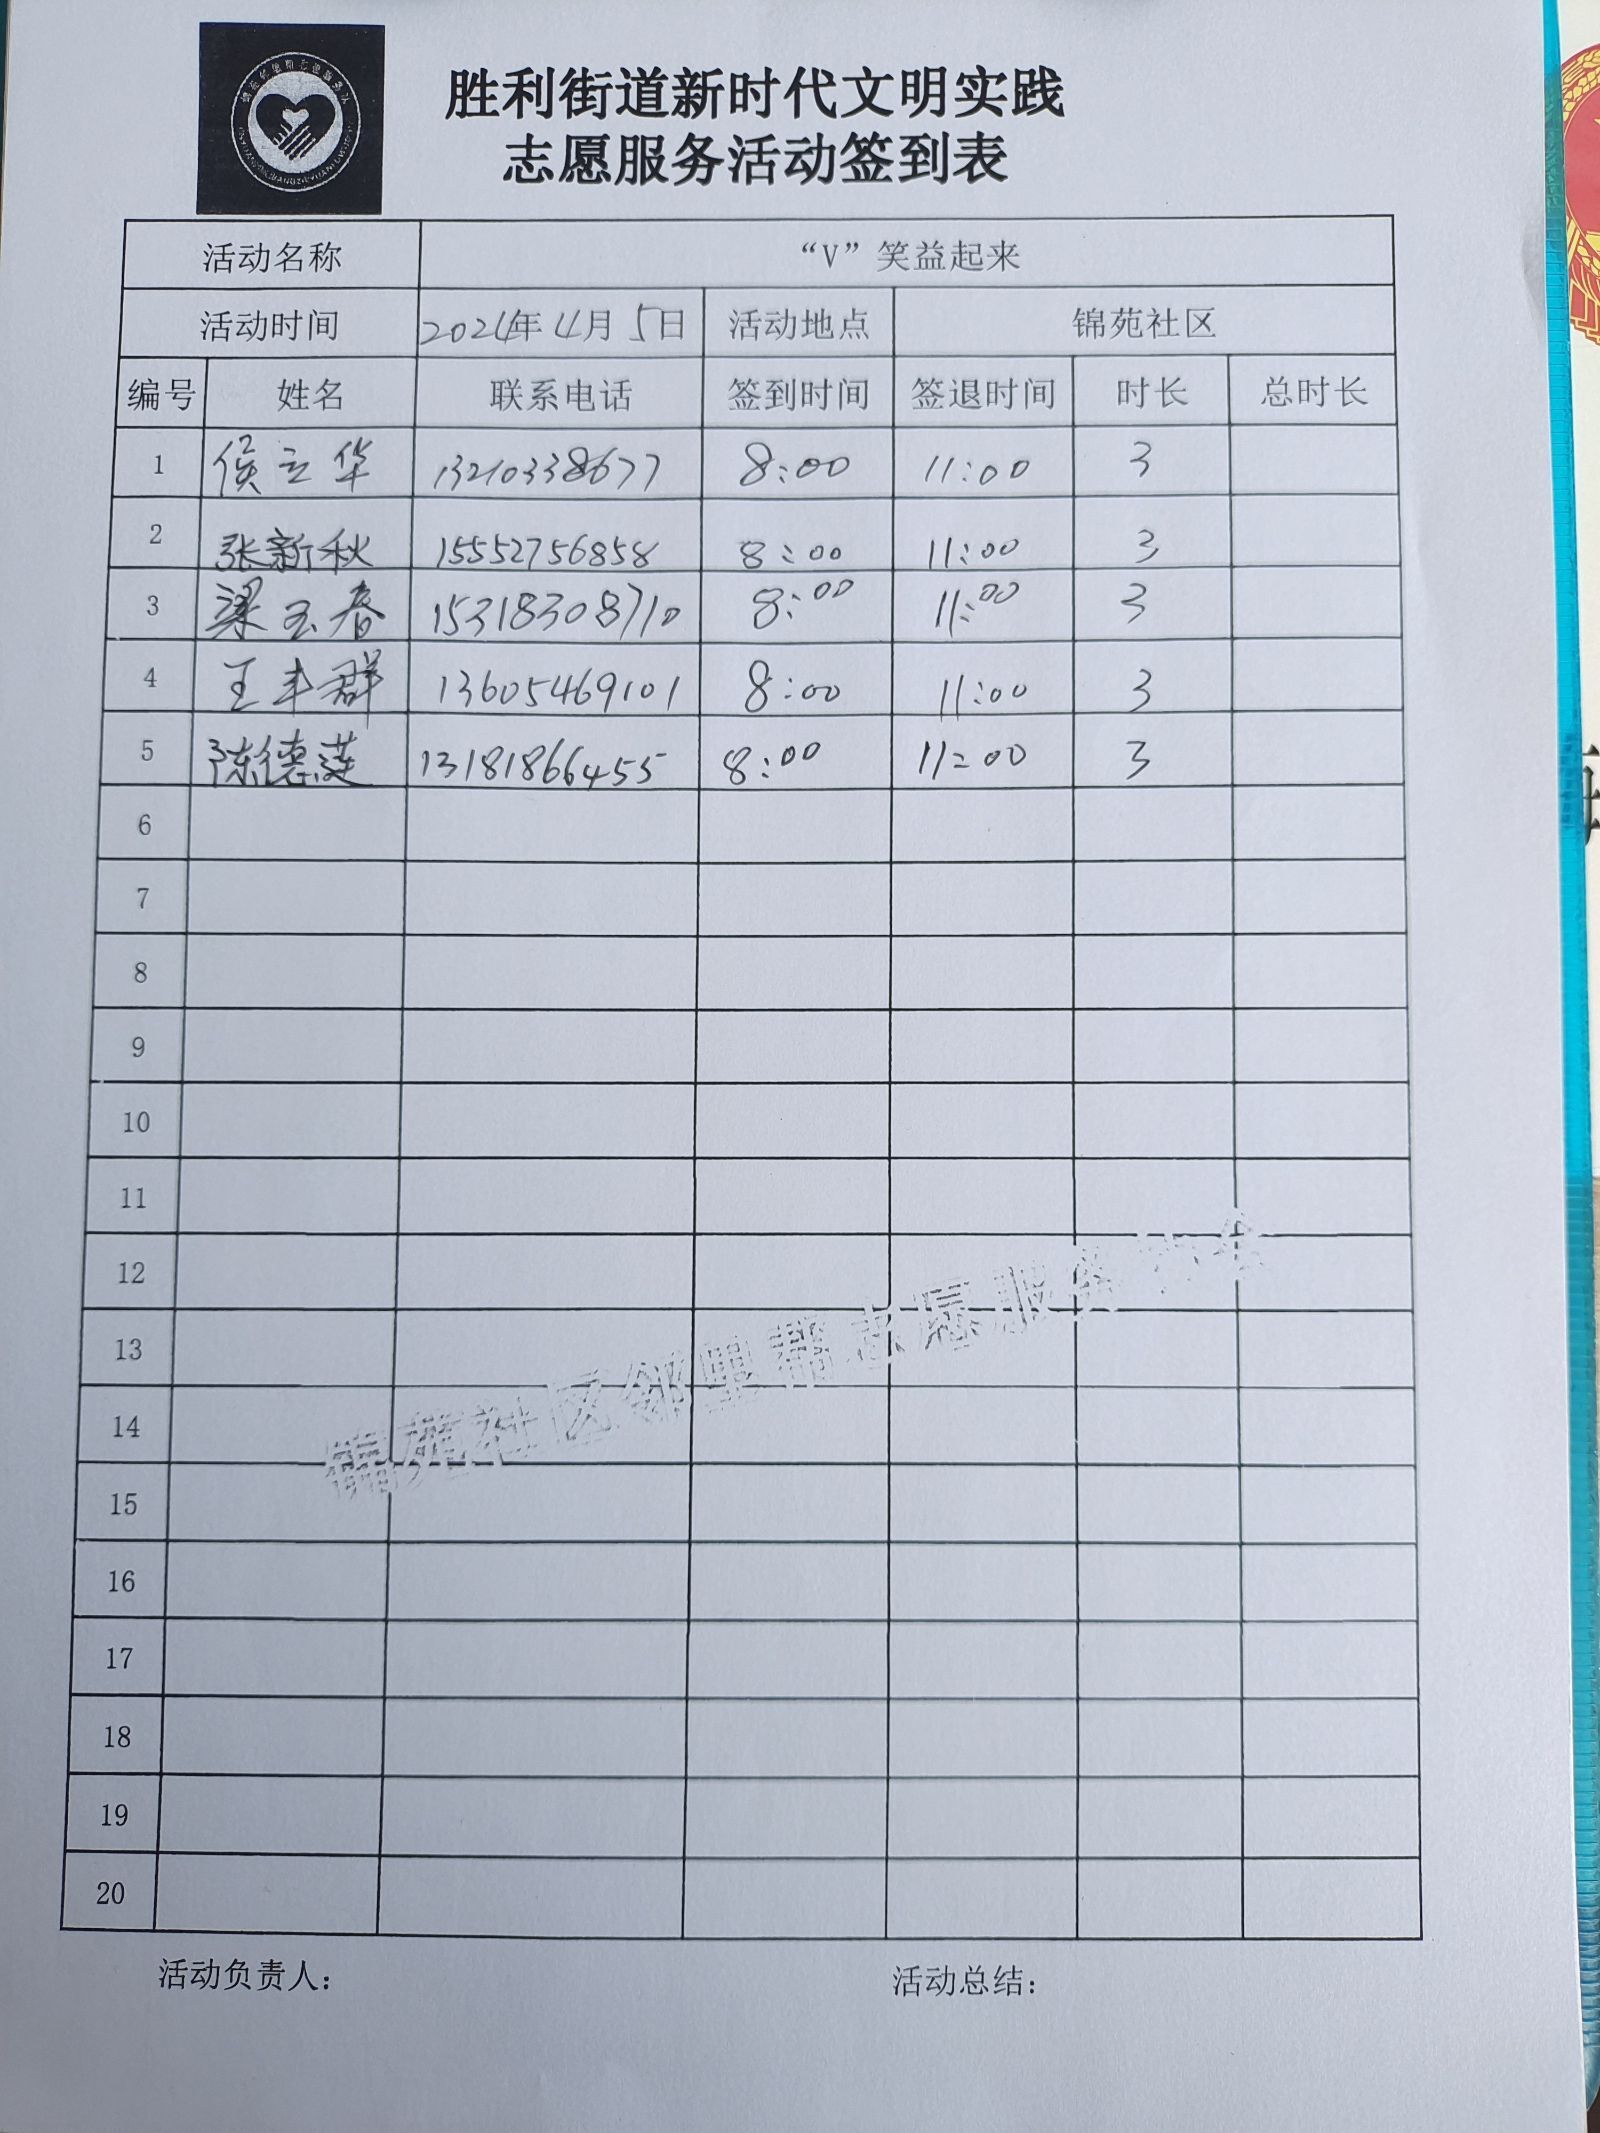 胜利街道新时代文明实践
志愿服务活动签到表
活动名称 “V”笑益起来
活动时间 2024年4月5日 活动地点 锦苑社区
编号 姓名 联系电话 签到时间 签退时间 时长 总时长
1 侯立华 13210338677 8:00 11:00 3
2 张新秋 15552756858 8:00 11:00 3
3 梁玉春 15318308710 8:00 11:00 3
4 王丰群 13605469101 8:00 11:00 3
5 陈德莲 13181866455 8:00 11:00 3
6
7
8
9
10
11
12
13
14
15
16
17
18
19
20
锦苑社区邻里帮志愿服务协会
活动负责人: 活动总结: